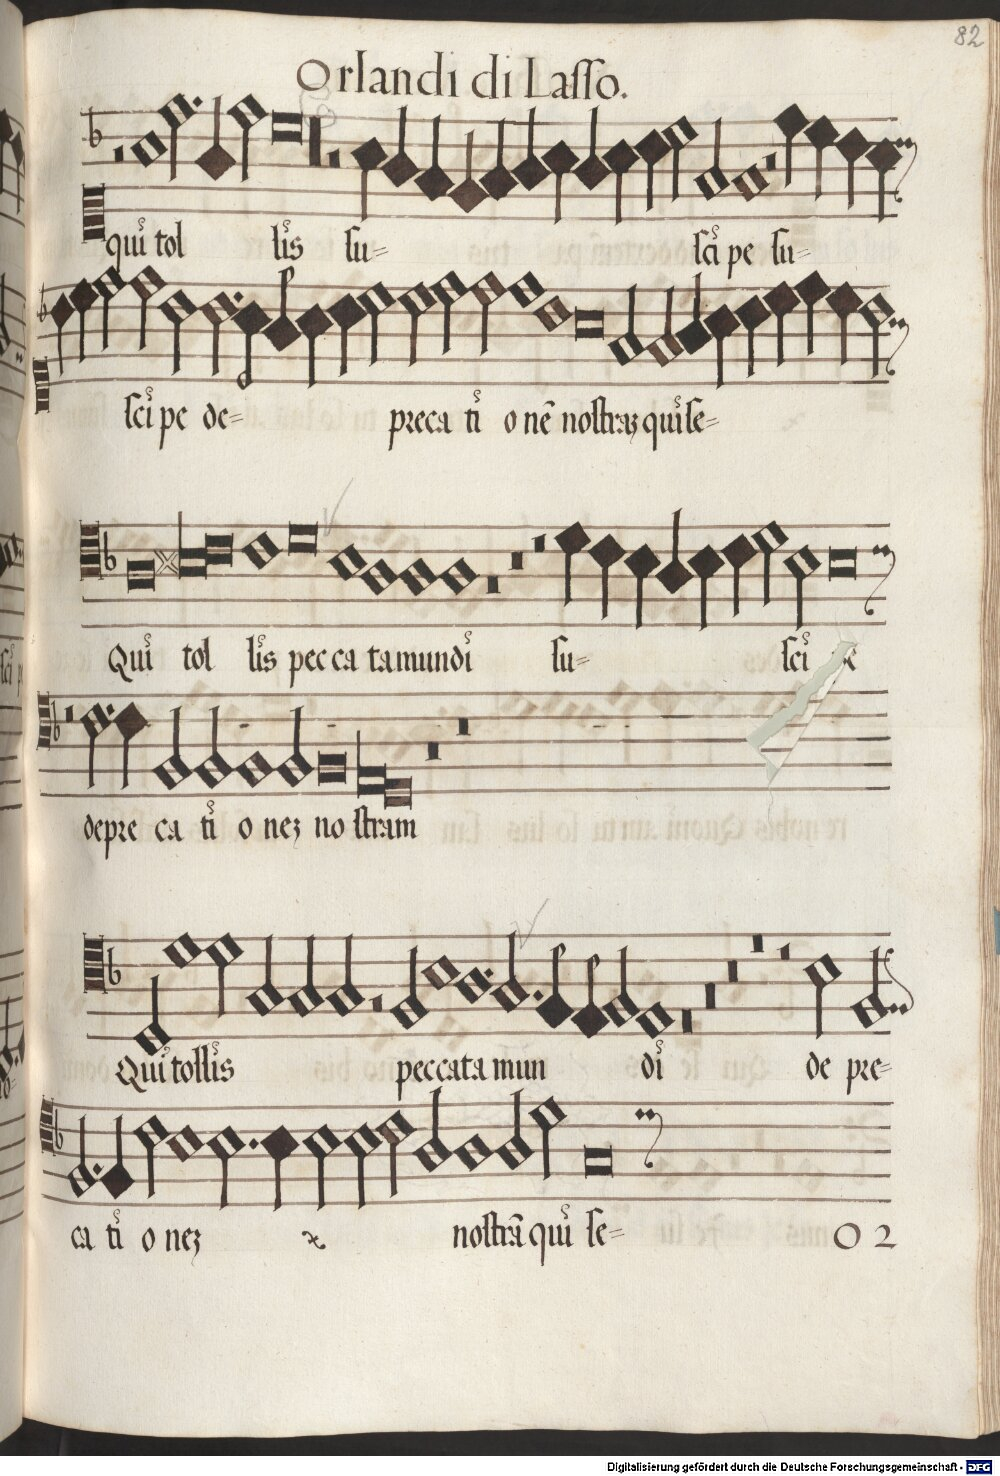 82
Orlandi di Lasso.
qui tol lis su= sci pe su=
sci pe de= preca ti o nē nostraȝ qui se=
Qui tol lis pec ca ta mundi su= sci
depre ca ti o neȝ no stram
Qui tollis peccata mun di de pre=
ca ti o neȝ nostrā qui se= O 2
Digitalisierung gefördert durch die Deutsche Forschungsgemeinschaft - DFG